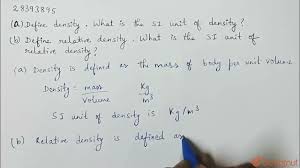 28393895
(a) Define density. What is the SI unit of density?
(b) Define relative density. What is the SI unit of
relative density?
(a) Density is defined as the mass of body per unit volume
Density = mass Kg
volume m³
SI unit of density is Kg/m³
(b) Relative density is defined as
doubtnut